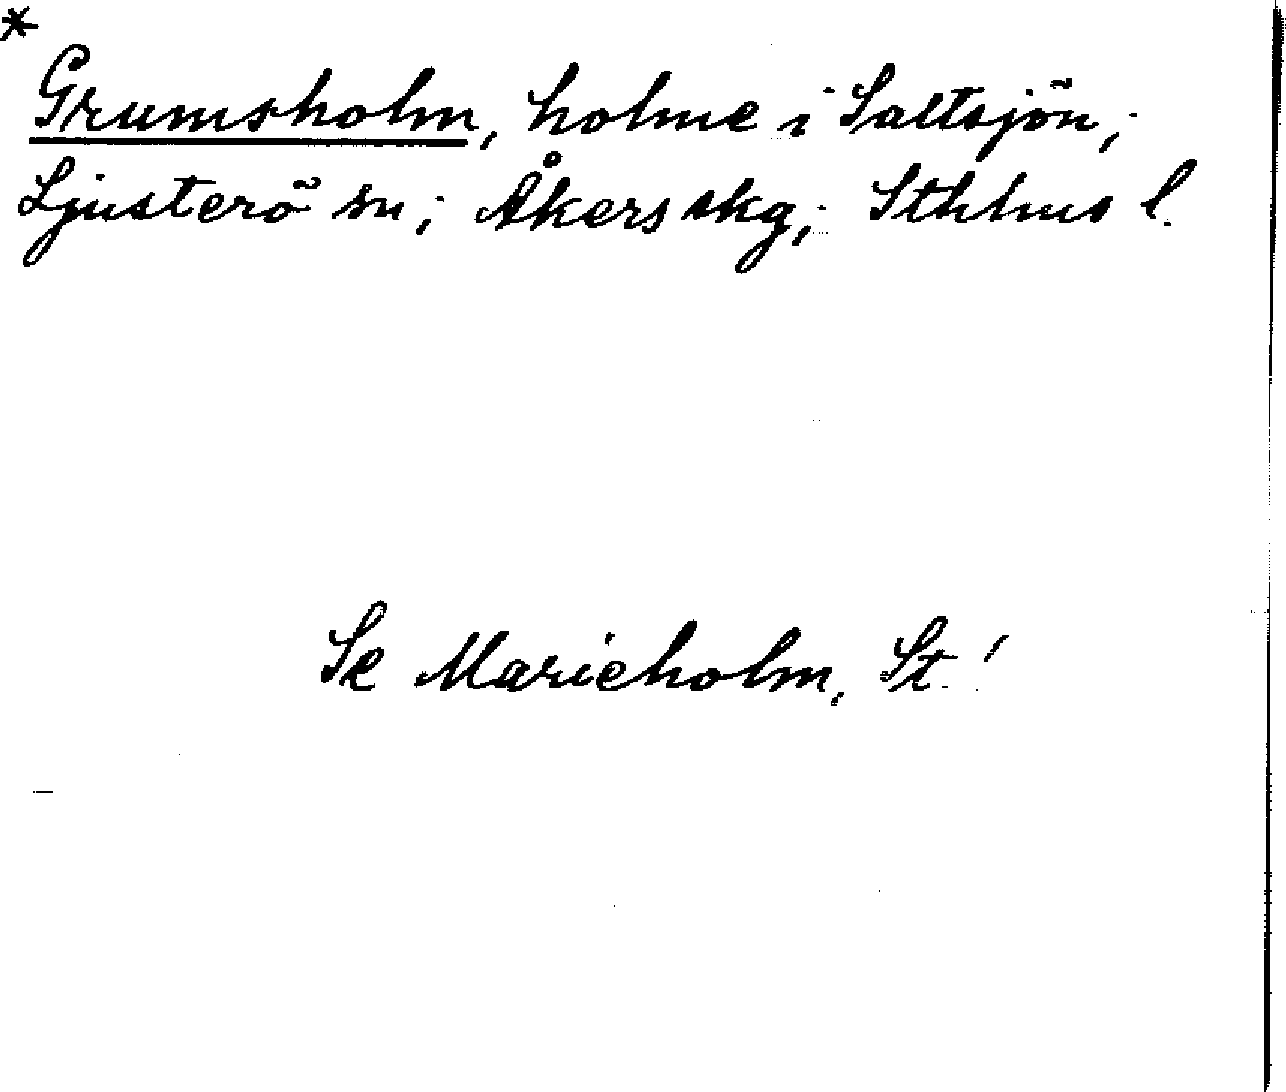 *
Grumsholm, holme i Saltsjön;
Ljusterö sn; Åkers skg; Sthlms l.
Se Marieholm, St.!